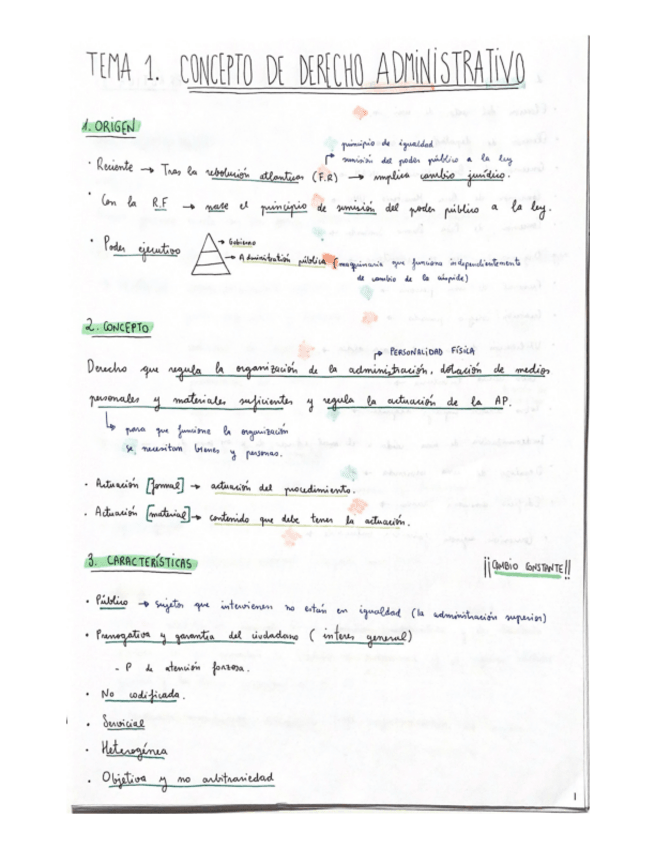 TEMA 1. CONCEPTO DE DERECHO ADMINISTRATIVO
1. ORIGEN
principio de igualdad
sumisión del poder público a la ley
· Reciente → Tras la revolución atlántica (F.R) → implica cambio jurídico.
· Con la R.F → nace el principio de sumisión del poder público a la ley.
· Poder ejecutivo → Gobierno
→ Administración pública (maquinaria que funciona independientemente
de cambio de la cúspide)
2. CONCEPTO
→ PERSONALIDAD FÍSICA
Derecho que regula la organización de la administración, dotación de medios
personales y materiales suficientes y regula la actuación de la AP.
para que funcione la organización
se necesitan bienes y personas.
· Actuación [formal] → actuación del procedimiento.
· Actuación [material] → contenido que debe tener la actuación.
3. CARACTERÍSTICAS
¡¡CAMBIO CONSTANTE!!
· Público → sujetos que intervienen no están en igualdad (la administración superior)
· Prerrogativa y garantía del ciudadano (interés general)
- P de atención forzosa.
· No codificada.
· Servicial
· Heterogénea
· Objetiva y no arbitrariedad
1